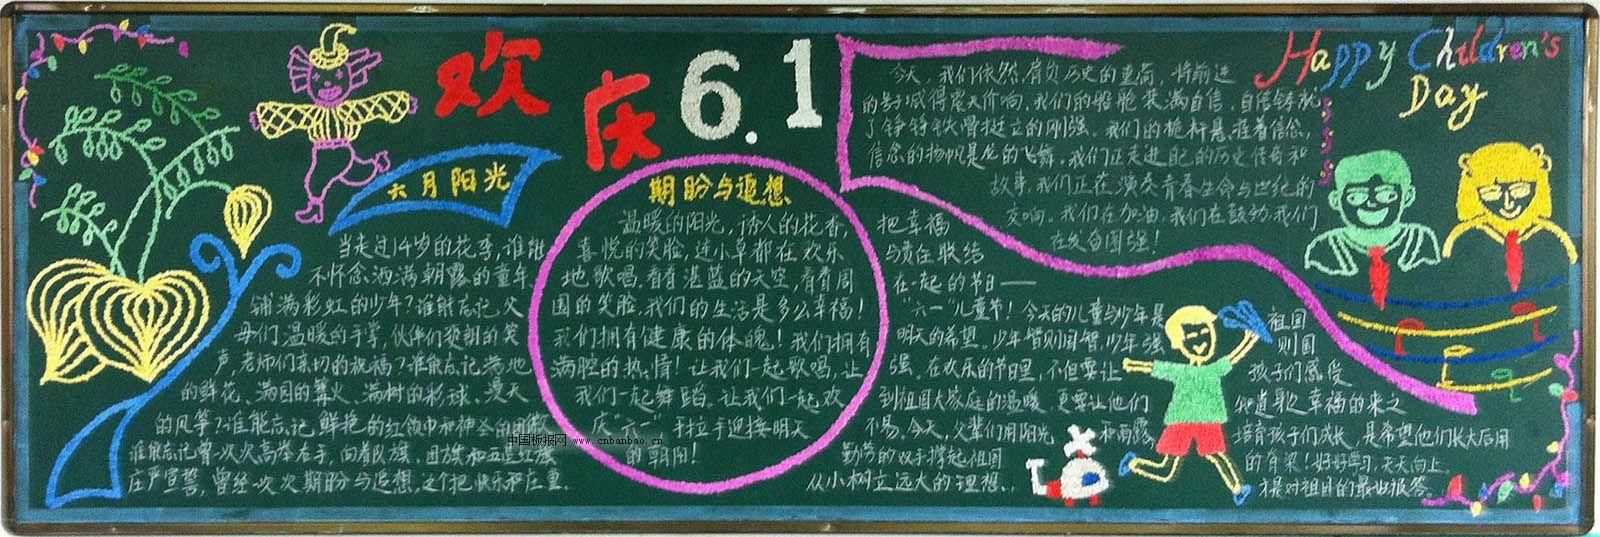 欢庆 6.1
Happy Children's
Day
六月阳光
当走过14岁的花季,谁能
不怀念洒满朝露的童年,
铺满彩虹的少年?谁能忘记父
母们温暖的手掌,伙伴们爽朗的笑
声,老师们亲切的祝福?谁能忘记满地
的鲜花、满园的篝火、满树的彩球、漫天
的风筝?谁能忘记,鲜艳的红领巾和神圣的团徽
谁能忘记曾一次次高举右手,向着队旗、团旗和五星红旗
庄严宣誓,曾经一次次期盼与追想,这个把快乐和庄重
期盼与追想
温暖的阳光,诱人的花香
喜悦的笑脸,连小草都在欢乐
地歌唱.看看湛蓝的天空,看看周
围的笑脸,我们的生活是多么幸福!
我们拥有健康的体魄!我们拥有
满腔的热情!让我们一起歌唱,让
我们一起舞蹈,让我们一起欢
庆"六一",手拉手迎接明天
的朝阳!
中国板报网 www.cnbanbao.cn
今天,我们依然,肩负历史的重荷,将前进
的号子喊得震天价响.我们的船舱装满自信,自信铸就
了铮铮铁骨挺立的刚强。我们的桅杆悬挂着信念,
信念的扬帆是龙的飞舞.我们正走进自己的历史传奇和
故事,我们正在演奏青春生命与世纪的
交响。我们在加油,我们在鼓劲,我们
在发奋图强!
把幸福
与责任联结
在一起的节日——
"六一"儿童节!今天的儿童与少年是 祖国
明天的希望。少年智则国智,少年强 则国
强。在欢乐的节日里,不但要让 孩子们感受
到祖国大家庭的温暖,更要让他们 知道幸福的来之
不易。今天,父辈们用阳光 和雨露 培育孩子们成长,是希望他们长大后用
勤劳的双手撑起祖国 的脊梁!好好学习,天天向上.
从小树立远大的理想. 才是对祖国的最好报答.